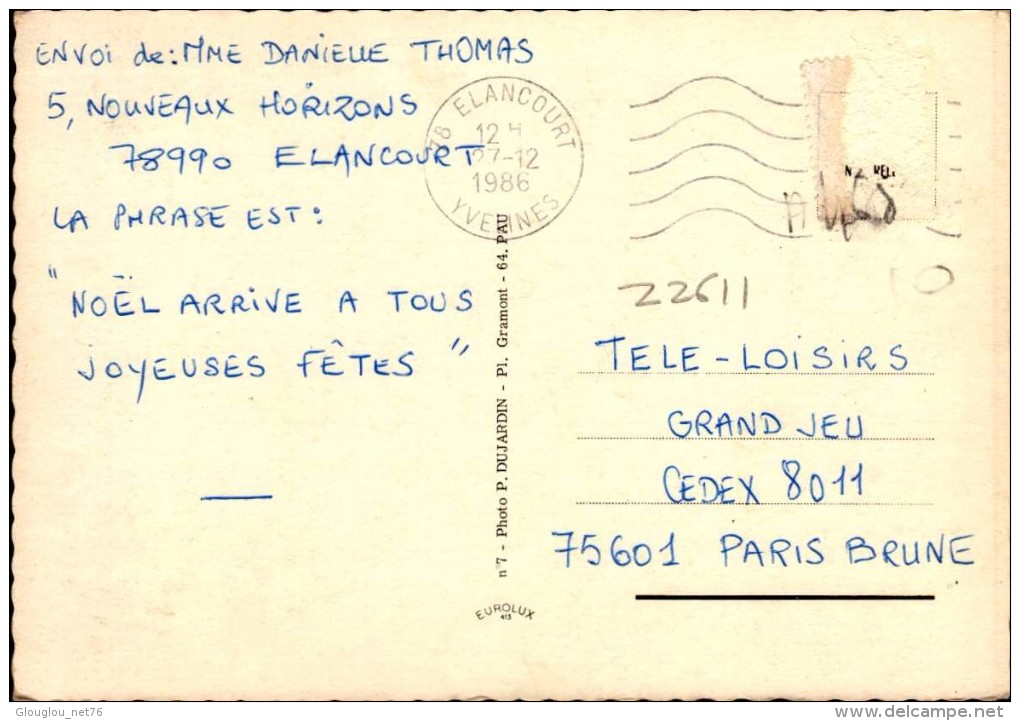 ENVOI de: MME DANIELLE THOMAS
5, NOUVEAUX HORIZONS
78990 ELANCOURT
LA PHRASE EST:
"NOËL ARRIVE A TOUS
JOYEUSES FÊTES"
78 ELANCOURT
12 H
27-12
1986
YVELINES
n°7 - Photo P. DUJARDIN - Pl. Gramont - 64. PAU
EUROLUX
22611
10
TELE-LOISIRS
GRAND JEU
CEDEX 8011
75601 PARIS BRUNE
Glouglou_net76
www.delcampe.net